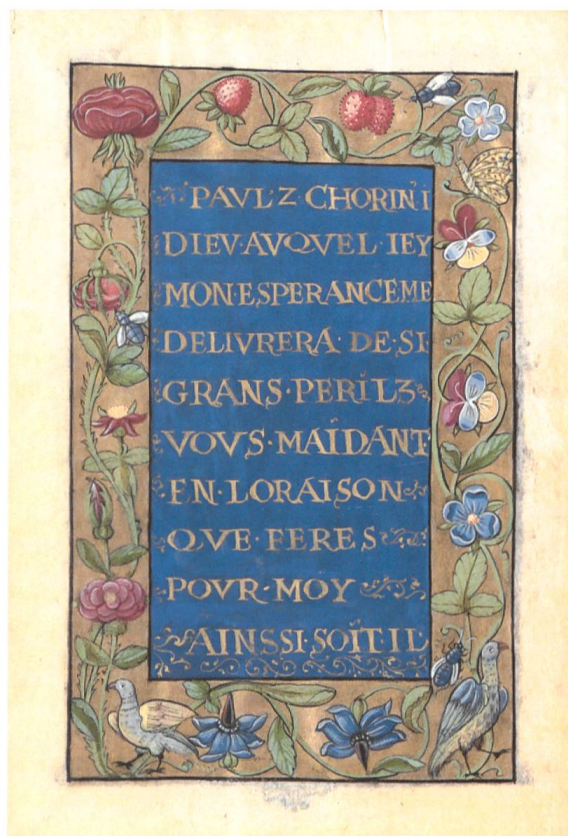 PAVL·Z·CHORIN·I
DIEV·AVQVEL·IEY
MON·ESPERANCEME
DELIVRERA·DE·SI·
GRANS·PERILZ
VOVS·MAÏDANT
EN·LORAISON
QVE·FERES
POVR·MOY
AINSSI·SOÏT IL